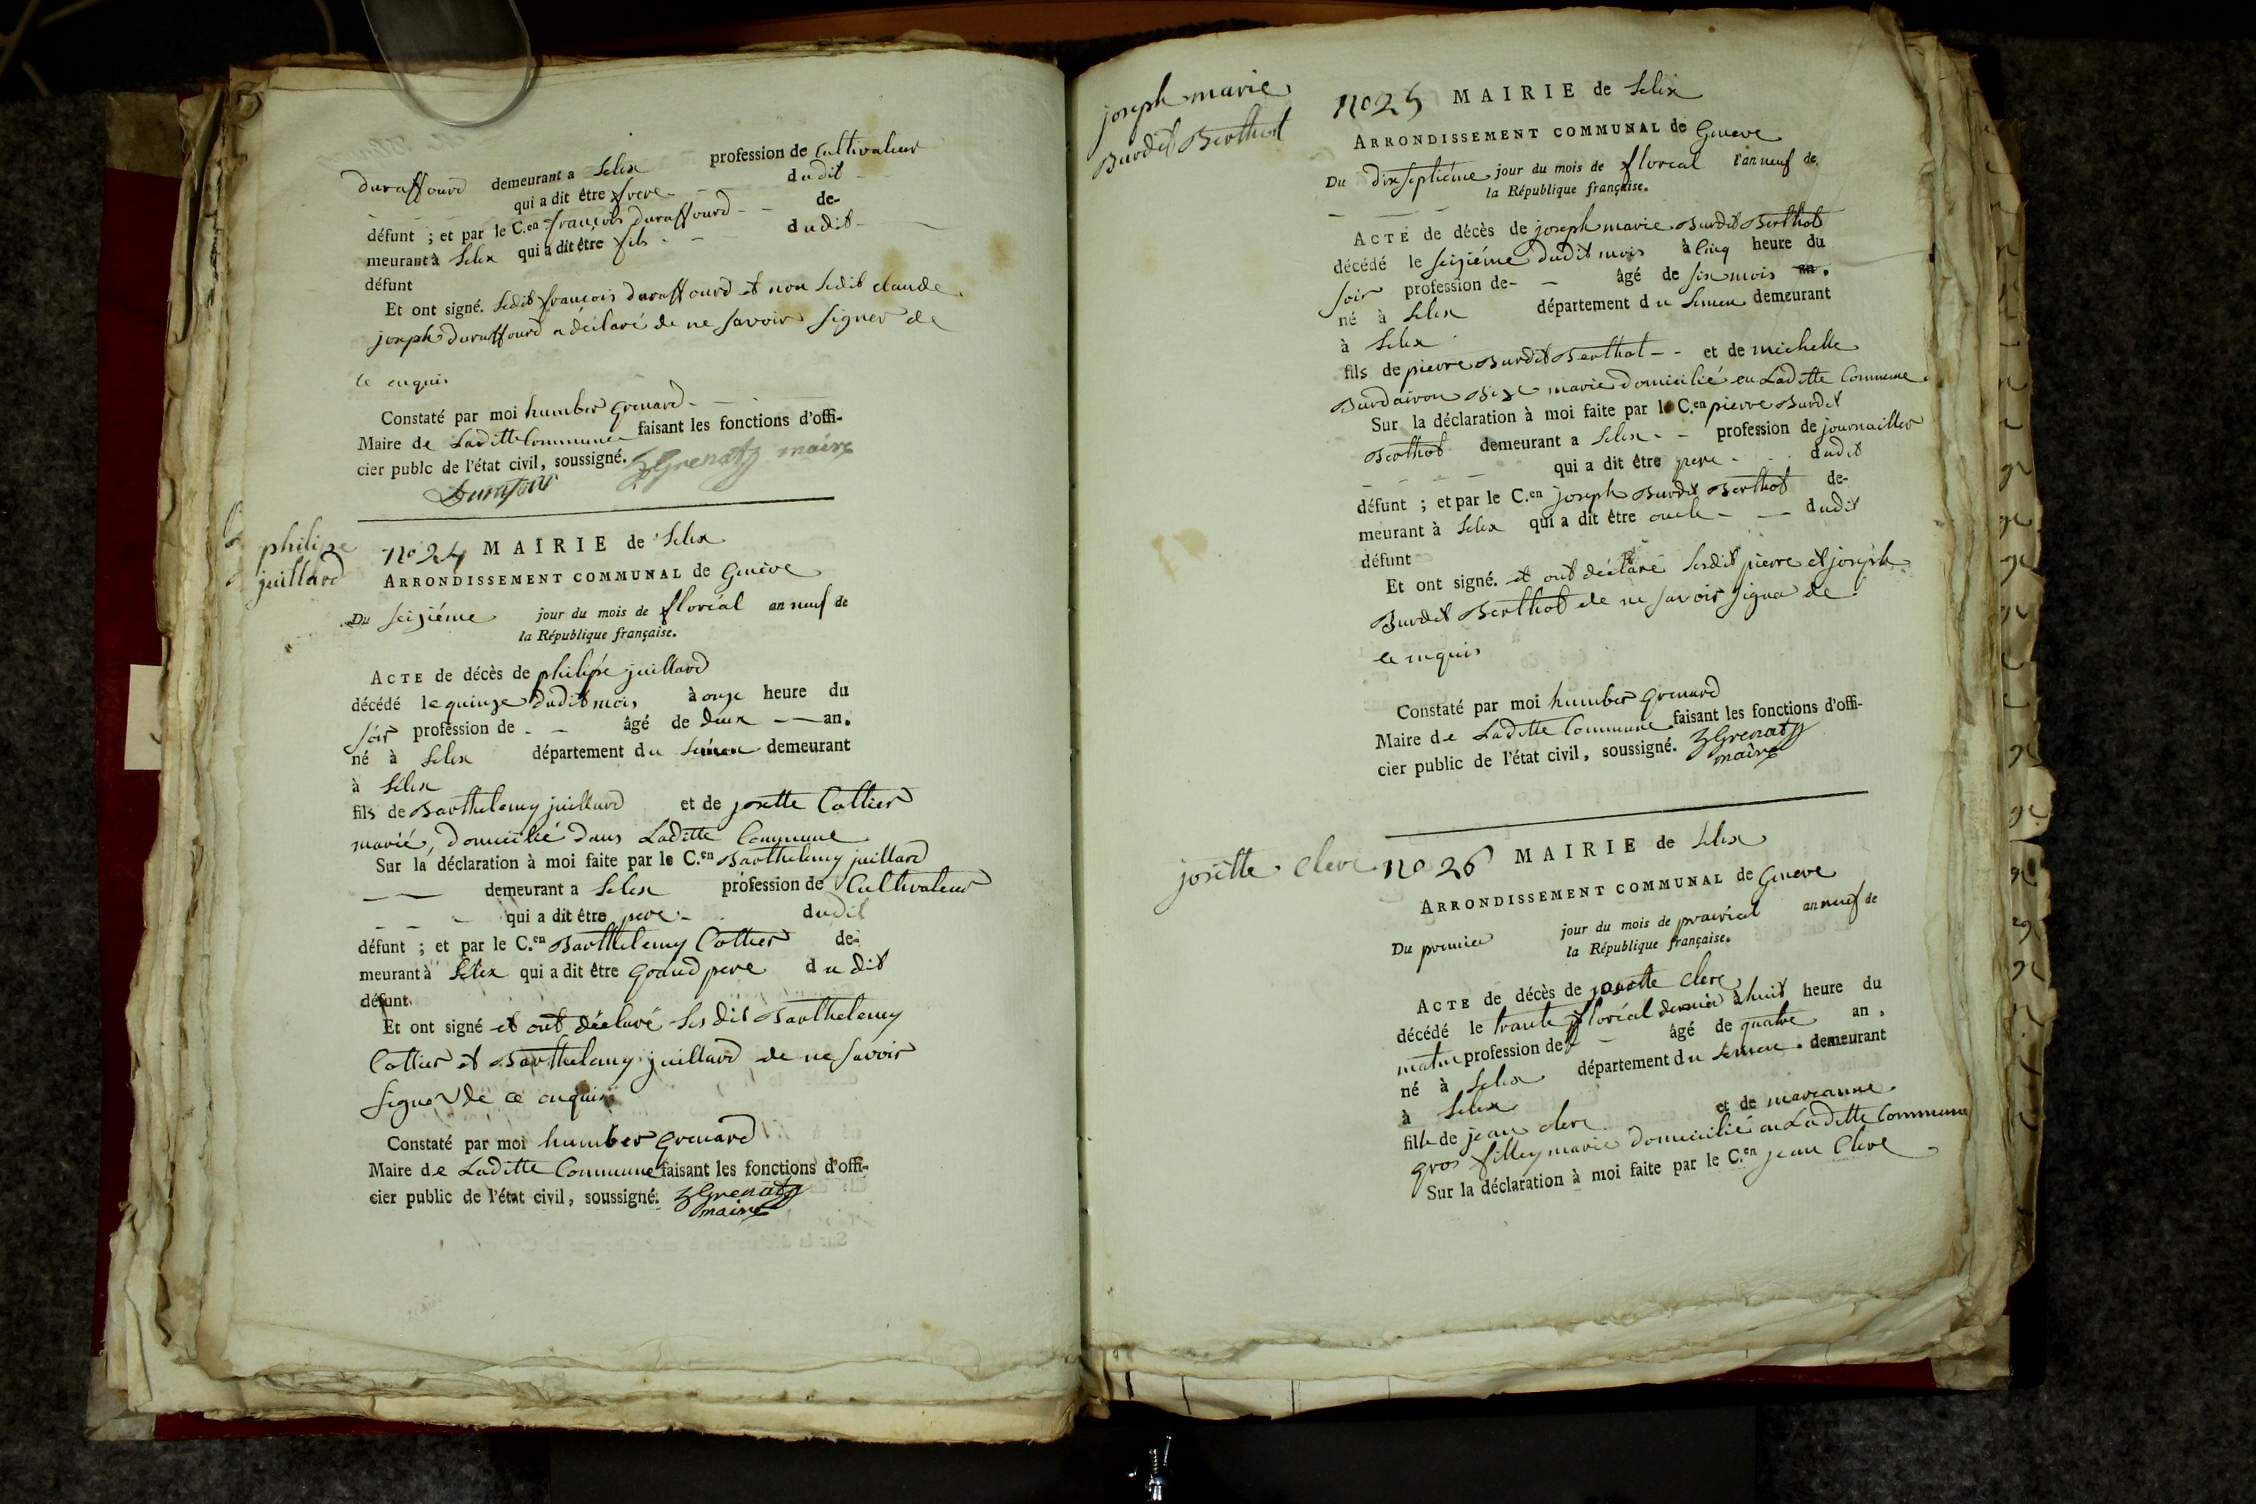 duraffourd demeurant a Selex profession de Cultivateur
qui a dit être frere dudit
défunt ; et par le C.en françois duraffourd de-
meurant à Selex qui a dit être fils dudit
défunt
Et ont signé. ledit françois duraffourd et non ledit claude
joseph duraffourd a déclaré de ne savoir signer de
ce enquis
Constaté par moi humber Grenard
Maire de Laditte Commune faisant les fonctions d'offi-
cier publc de l'état civil, soussigné. Grenat maire
philipe
juillard
no 24 MAIRIE de Selex
ARRONDISSEMENT COMMUNAL de Genève
Du seiziéme jour du mois de floréal an neuf de
la République française.
ACTE de décès de philipe juillard
décédé le quinze dudit mois à onze heure du
soir profession de - âgé de deux an.
né à Selex département du Leman demeurant
à Selex
fils de Barthelemy juillard et de josette Cottier
marié, domicilié dans Laditte Commune
Sur la déclaration à moi faite par le C.en Barthelemy juillard
demeurant a Selex profession de Cultivateur
qui a dit être pere dudit
défunt ; et par le C.en Barthelemy Cottier de-
meurant à Selex qui a dit être Grand pere dudit
défunt
Et ont signé et ont déclaré les dit Barthelemy
Cottier et Barthelemy juillard de ne savoir
signer de ce enquis
Constaté par moi humber Grenard
Maire de Laditte Commune faisant les fonctions d'offi-
cier public de l'état civil, soussigné. Grenat
maire
joseph marie
Burdet Berthot
no 25 MAIRIE de Selex
ARRONDISSEMENT COMMUNAL de Geneve
Du dix septiéme jour du mois de floreal l'an neuf de
la République française.
ACTE de décès de joseph marie Burdet Berthot
décédé le seiziéme dudit mois à Cinq heure du
soir profession de - âgé de six mois an.
né à Selex département du Leman demeurant
à Selex
fils de pierre Burdet Berthot et de michelle
marié domicilié en Laditte Commune
Sur la déclaration à moi faite par le C.en pierre Burdet
Berthot demeurant a Selex profession de journaillier
qui a dit être pere dudit
défunt ; et par le C.en joseph Burdet Berthot de-
meurant à Selex qui a dit être oncle dudit
défunt
Et ont signé. et ont déclaré lesdit pierre et joseph
Burdet Berthot de ne savoir signer de
ce enquis
Constaté par moi humber Grenard
Maire de Laditte Commune faisant les fonctions d'offi-
cier public de l'état civil, soussigné. Grenat
maire
josette Clerc no 26 MAIRIE de Selex
ARRONDISSEMENT COMMUNAL de Geneve
Du premier jour du mois de prairial an neuf de
la République française.
ACTE de décès de josette Clerc
décédé le trante floréal dernier à huit heure du
matin profession de - âgé de quatre an,
né à Selex département du Leman demeurant
à Selex
fille de jean clerc et de marianne
gros filley marié domicilié en Laditte Commune
Sur la déclaration à moi faite par le C.en jean Clerc